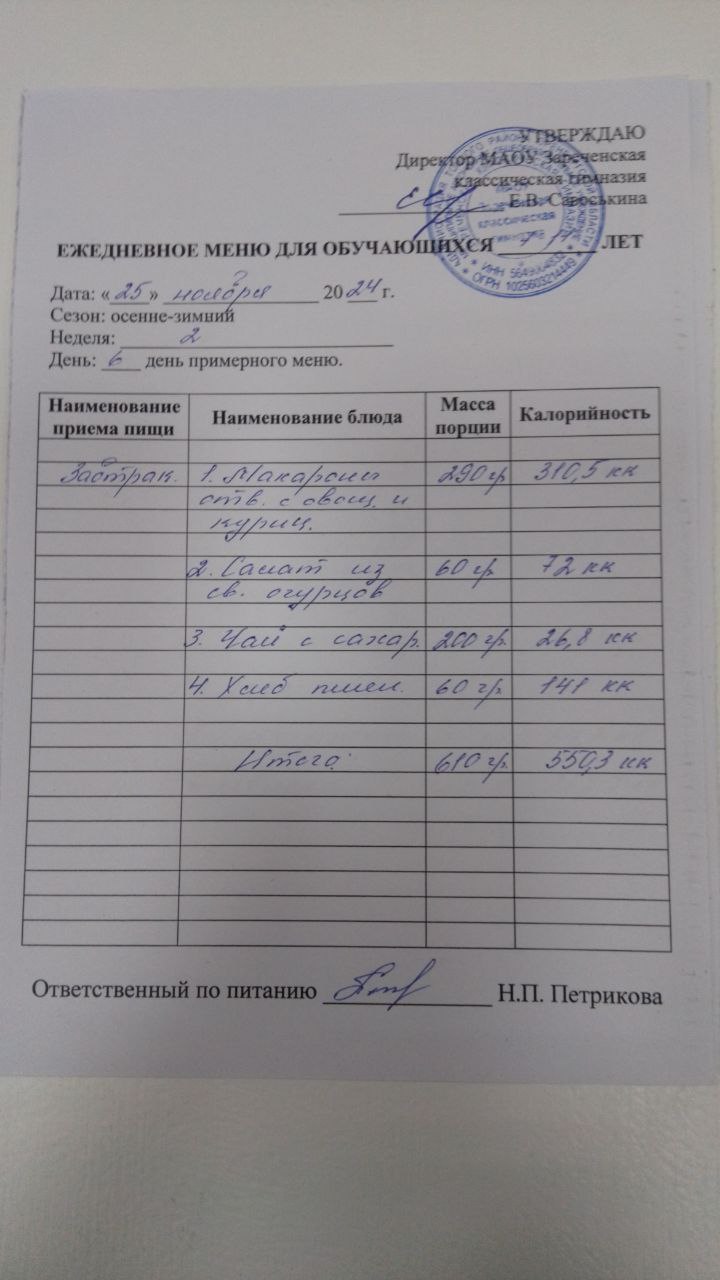 УТВЕРЖДАЮ
Директор МАОУ Зареченская
классическая гимназия
Е.В. Савоськина
ЕЖЕДНЕВНОЕ МЕНЮ ДЛЯ ОБУЧАЮЩИХСЯ ЛЕТ
Дата: «25» ноября 2024 г.
Сезон: осенне-зимний
Неделя: 2
День: 6 день примерного меню.
Наименование приема пищи Наименование блюда Масса порции Калорийность
Завтрак. 1. Макароны 290 гр 310,5 кк
отв. с овощ. и
куриц.
2. Салат из 60 гр. 72 кк
св. огурцов
3. Чай с сахар. 200 гр. 26,8 кк
4. Хлеб пшен. 60 гр. 141 кк
Итого: 610 гр. 550,3 кк
Ответственный по питанию Н.П. Петрикова
классическая
ИНН
ОГРН 1025603214449